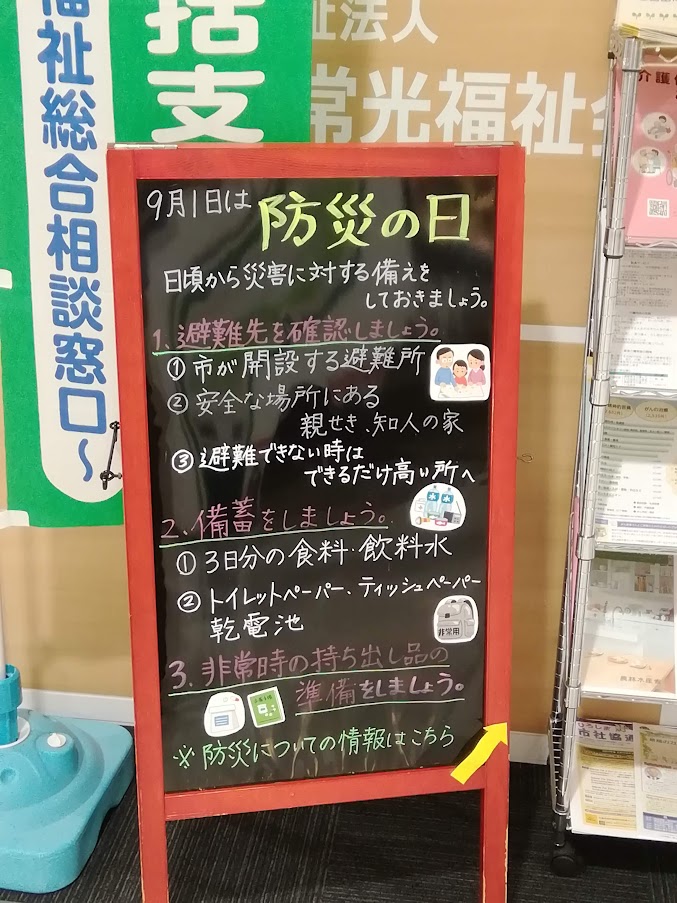 括支
福祉総合相談窓口～
祉法人
常光福祉会
介護
9月1日は
防災の日
日頃から災害に対する備えを
しておきましょう。
1、避難先を確認しましょう。
① 市が開設する避難所
② 安全な場所にある
親せき、知人の家
③ 避難できない時は
できるだけ高い所へ
2、備蓄をしましょう。
① 3日分の食料・飲料水
② トイレットペーパー、ティッシュペーパー
乾電池
非常用
3、非常時の持ち出し品の
準備をしましょう。
※ 防災についての情報はこちら
ひろしま
市社協通